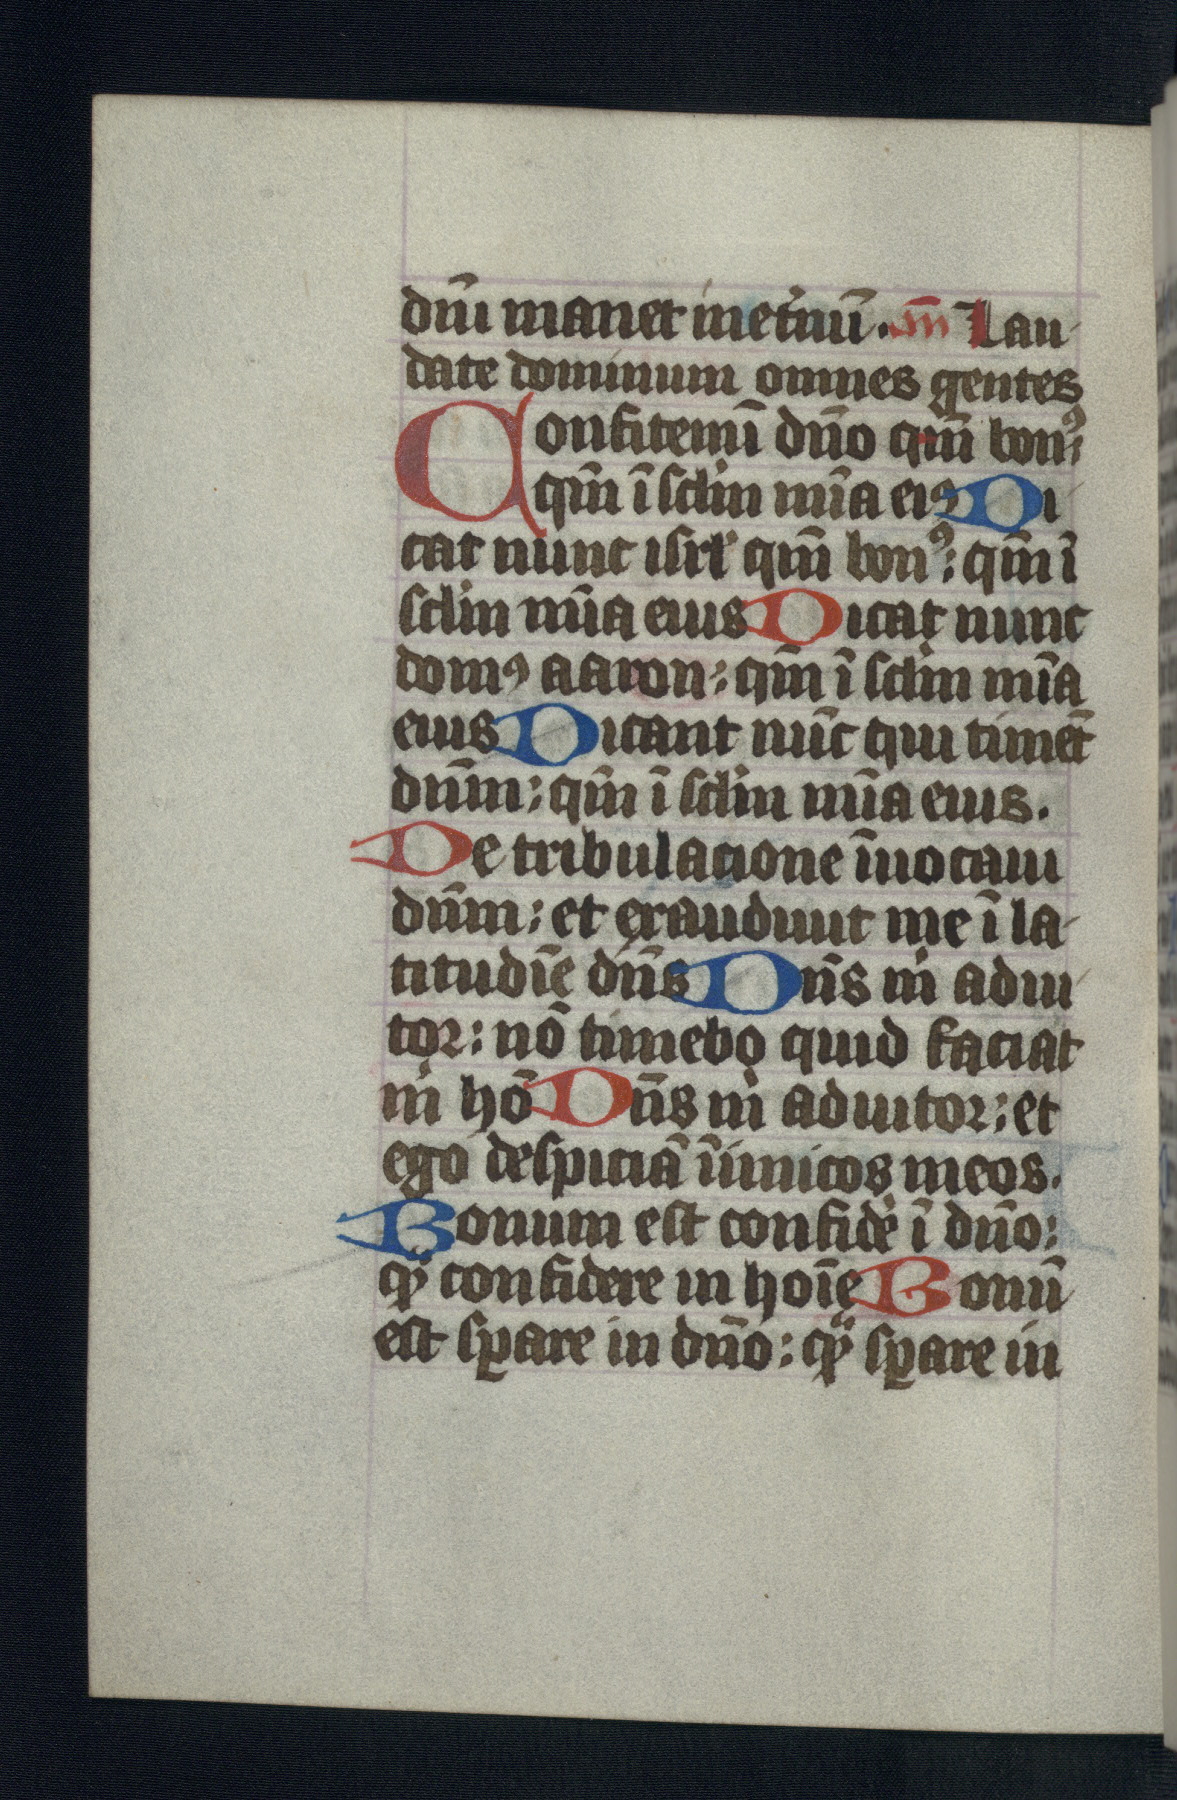 dñi manet in et̾nū. añ Lau
date dominum omnes gentes
Confitemī dño qm̄ bonꝰ:
qm̄ ī sclm̄ mīa eiꝰ Di
cat nunc isrl̾ qm̄ bonꝰ: qm̄ ī
sclm̄ mīa eius Dicat nunc
domꝰ aaron: qm̄ ī sclm̄ mīa
eius Dicant nūc qui timēt
dnm̄: qm̄ ī sclm̄ mīa eius.
De tribulacione īuocaui
dnm̄: et exaudiuit me ī la
titudīe dñs Dñs m̍ adiu
tor: nō timebo quid faciat
m̍ hō Dñs m̍ adiutor: et
ego despiciā īimicos meos.
Bonum est confide̾ ī dño:
qᷓ confidere in hoīe Bonū
est sꝑare in dño: qᷓ sꝑare in